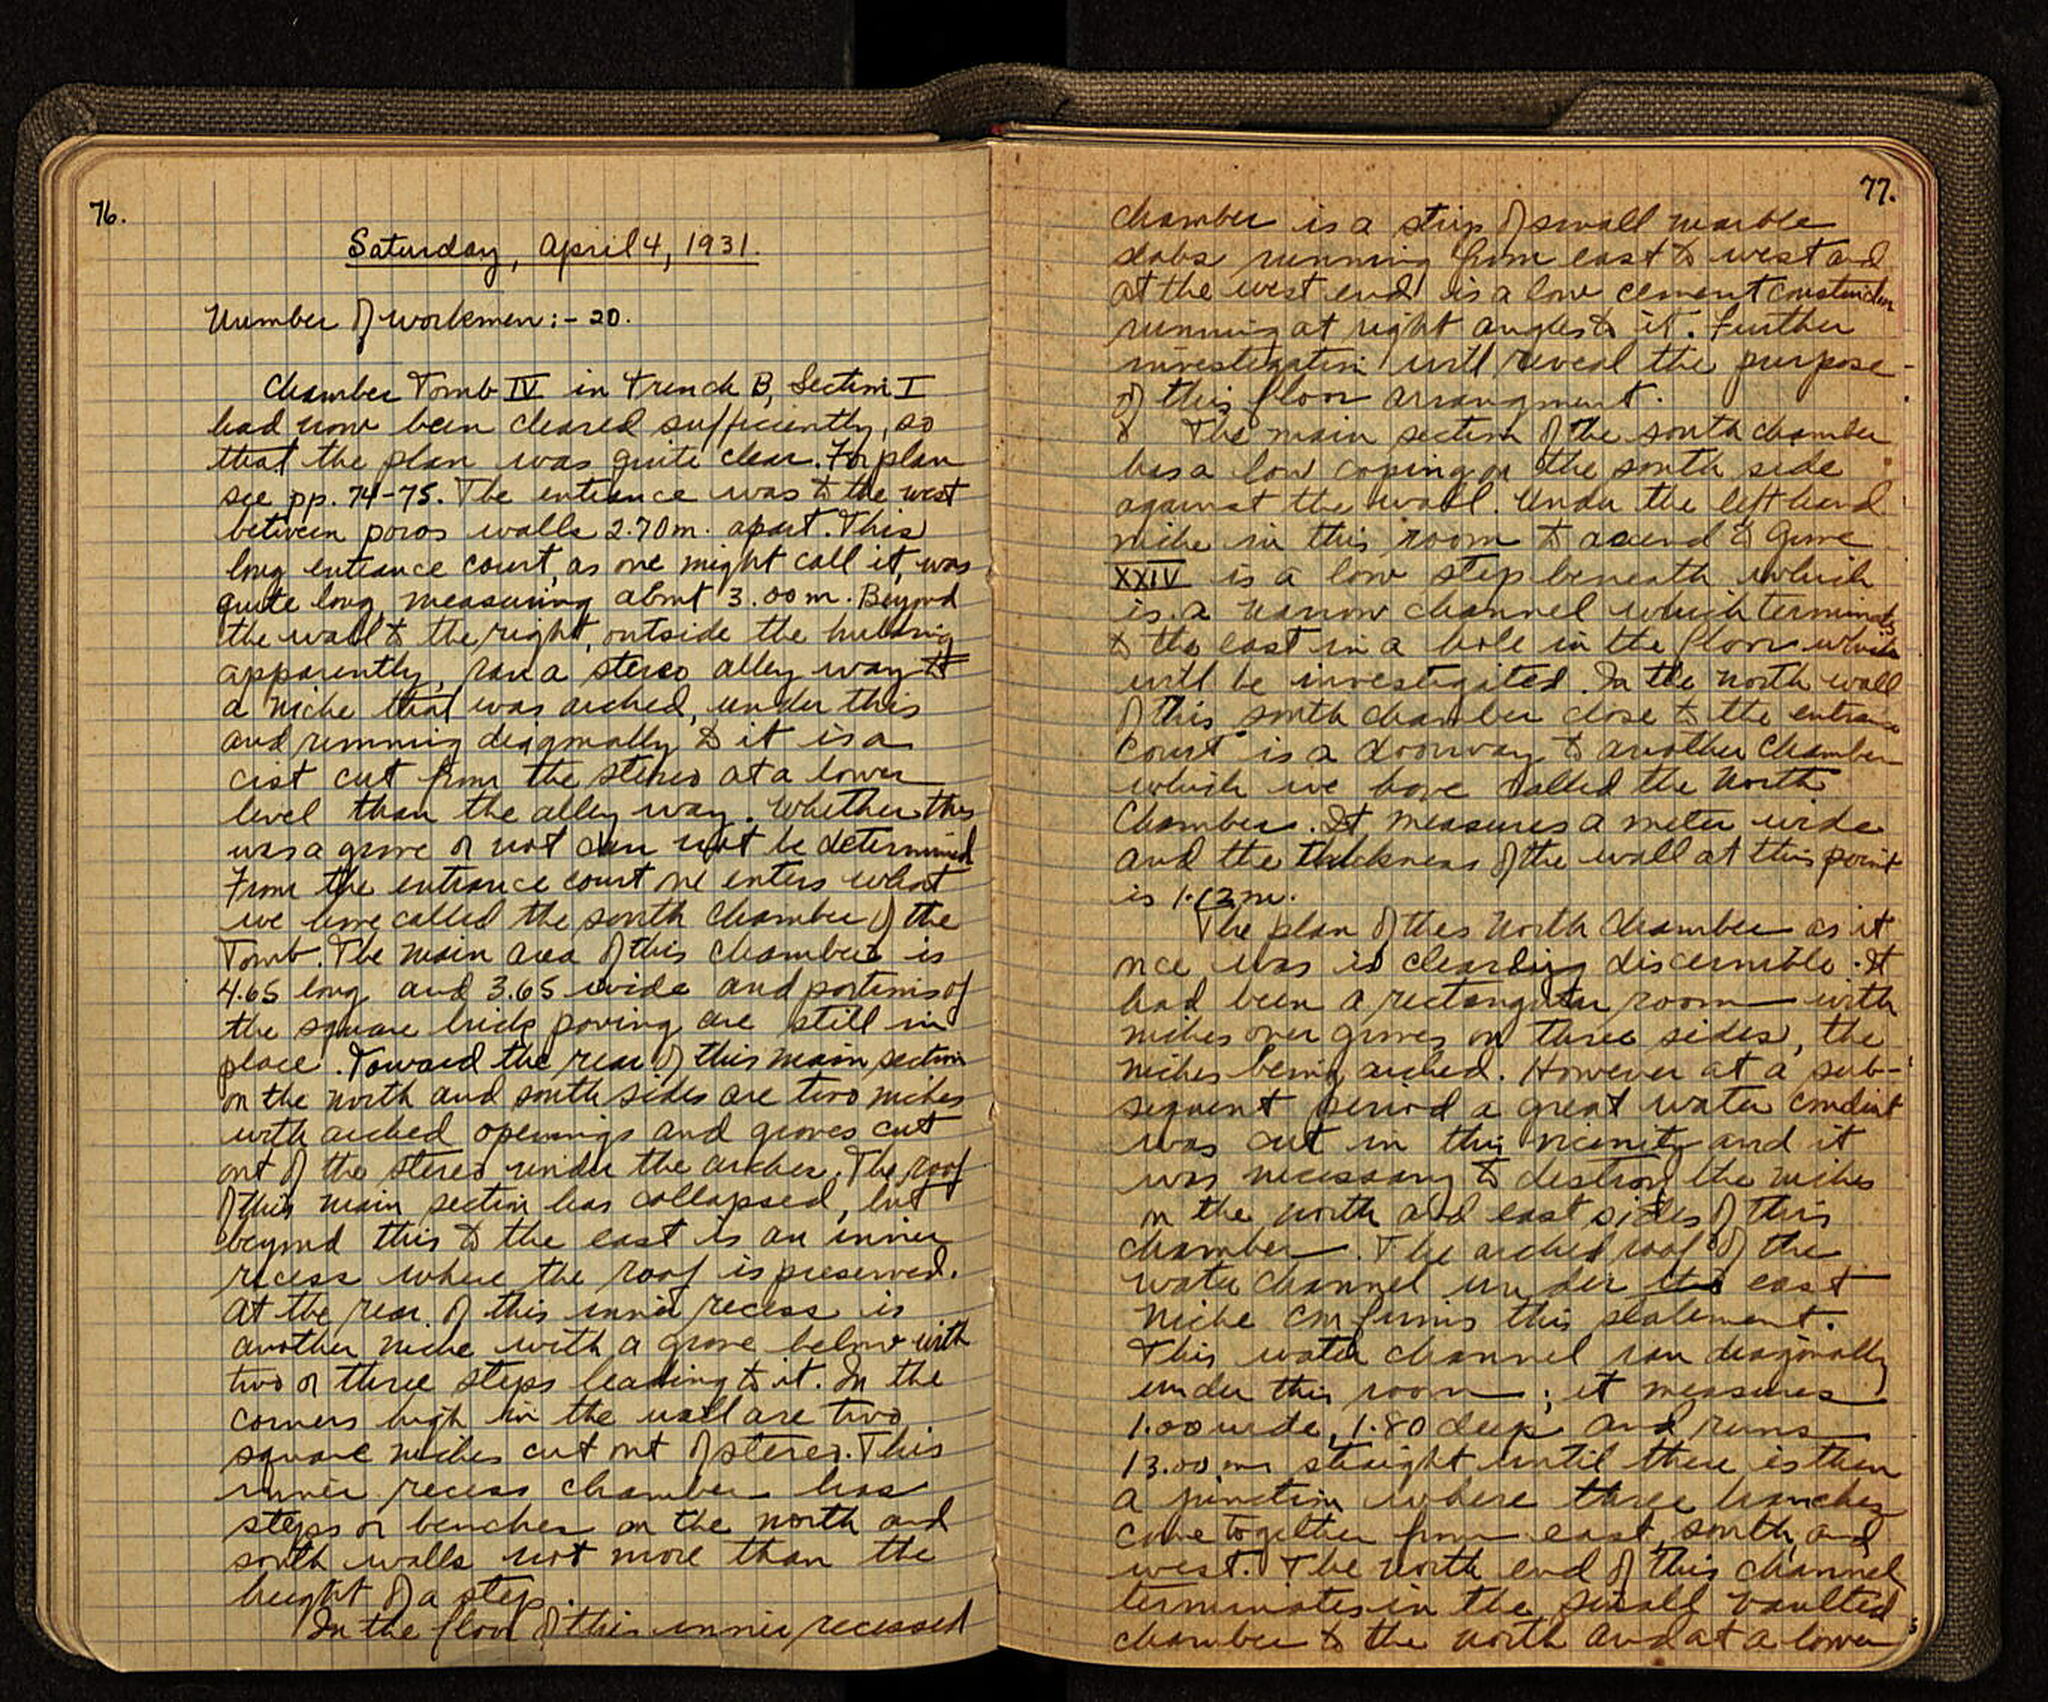 76.
Saturday, April 4, 1931.
Number of workmen:- 20.
Chamber Tomb IV in Trench B, Section I
had now been cleared sufficiently, so
that the plan was quite clear. For plan
see pp. 74-75. The entrance was to the west
between poros walls 2.70 m. apart. This
long entrance court, as one might call it, was
quite long, measuring about 3.00 m. Beyond
the wall to the right, outside the building
apparently, ran a stereo alley way to
a niche that was arched, under this
and running diagonally to it is a
cist cut from the stereo at a lower
level than the alley way. Whether this
was a grave or not can not be determined
From the entrance court one enters what
we have called the south chamber of the
Tomb. The main area of this chamber is
4.65 long and 3.65 wide and portions of
the square brick paving are still in
place. Toward the rear of this main section
on the north and south sides are two niches
with arched openings and graves cut
out of the stereo under the arches. The roof
of this main section has collapsed, but
beyond this to the east is an inner
recess where the roof is preserved.
At the rear of this inner recess is
another niche with a grave below with
two or three steps leading to it. In the
corners high in the wall are two
square niches cut out of stereo. This
inner recess chamber has
steps or benches on the north and
south walls not more than the
height of a step.
In the floor of this inner recessed
77.
chamber is a strip of small marble
slabs running from east to west and
at the west end is a low cement construction
running at right angles to it. Further
investigation will reveal the purpose
of this floor arrangment.
The main section of the south chamber
has a low coping on the south side
against the wall. Under the left hand
niche in this room to ascend to Grave
XXIV is a low step beneath which
is a narrow channel which terminates
to the east in a hole in the floor which
will be investigated. In the north wall
of this south chamber close to the entrance
court is a doorway to another chamber
which we have called the North
Chamber. It measures a meter wide
and the thickness of the wall at this point
is 1.12 m.
The plan of this North Chamber as it
once was is clearly discernible. It
had been a rectangular room with
niches over graves on three sides, the
niches being arched. However at a sub-
sequent period a great water conduit
was cut in this vicinity and it
was necessary to destroy the niches
on the north and east sides of this
chamber. The arched roof of the
water channel under the east
niche confirms this statement.
This water channel ran diagonally
under this room; it measures
1.00 wide, 1.80 deep and runs
13.00 m straight until there is then
a junction where three branches
come together from east, south, and
west. The north end of this channel
terminates in the small vaulted
chamber to the north and at a lower